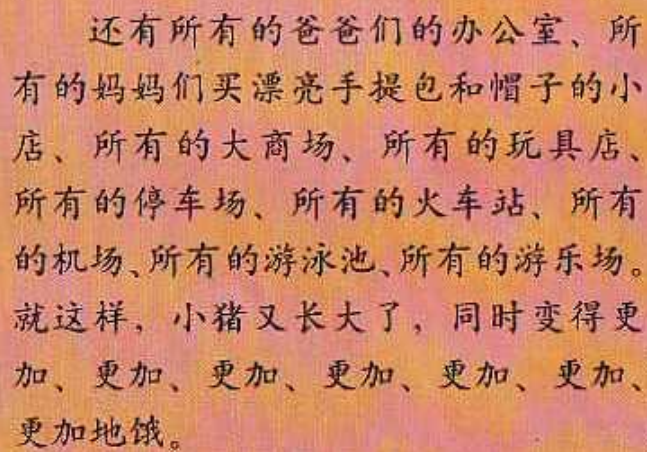 还有所有的爸爸们的办公室、所
有的妈妈们买漂亮手提包和帽子的小
店、所有的大商场、所有的玩具店、
所有的停车场、所有的火车站、所有
的机场、所有的游泳池、所有的游乐场。
就这样，小猪又长大了，同时变得更
加、更加、更加、更加、更加、更加、
更加地饿。